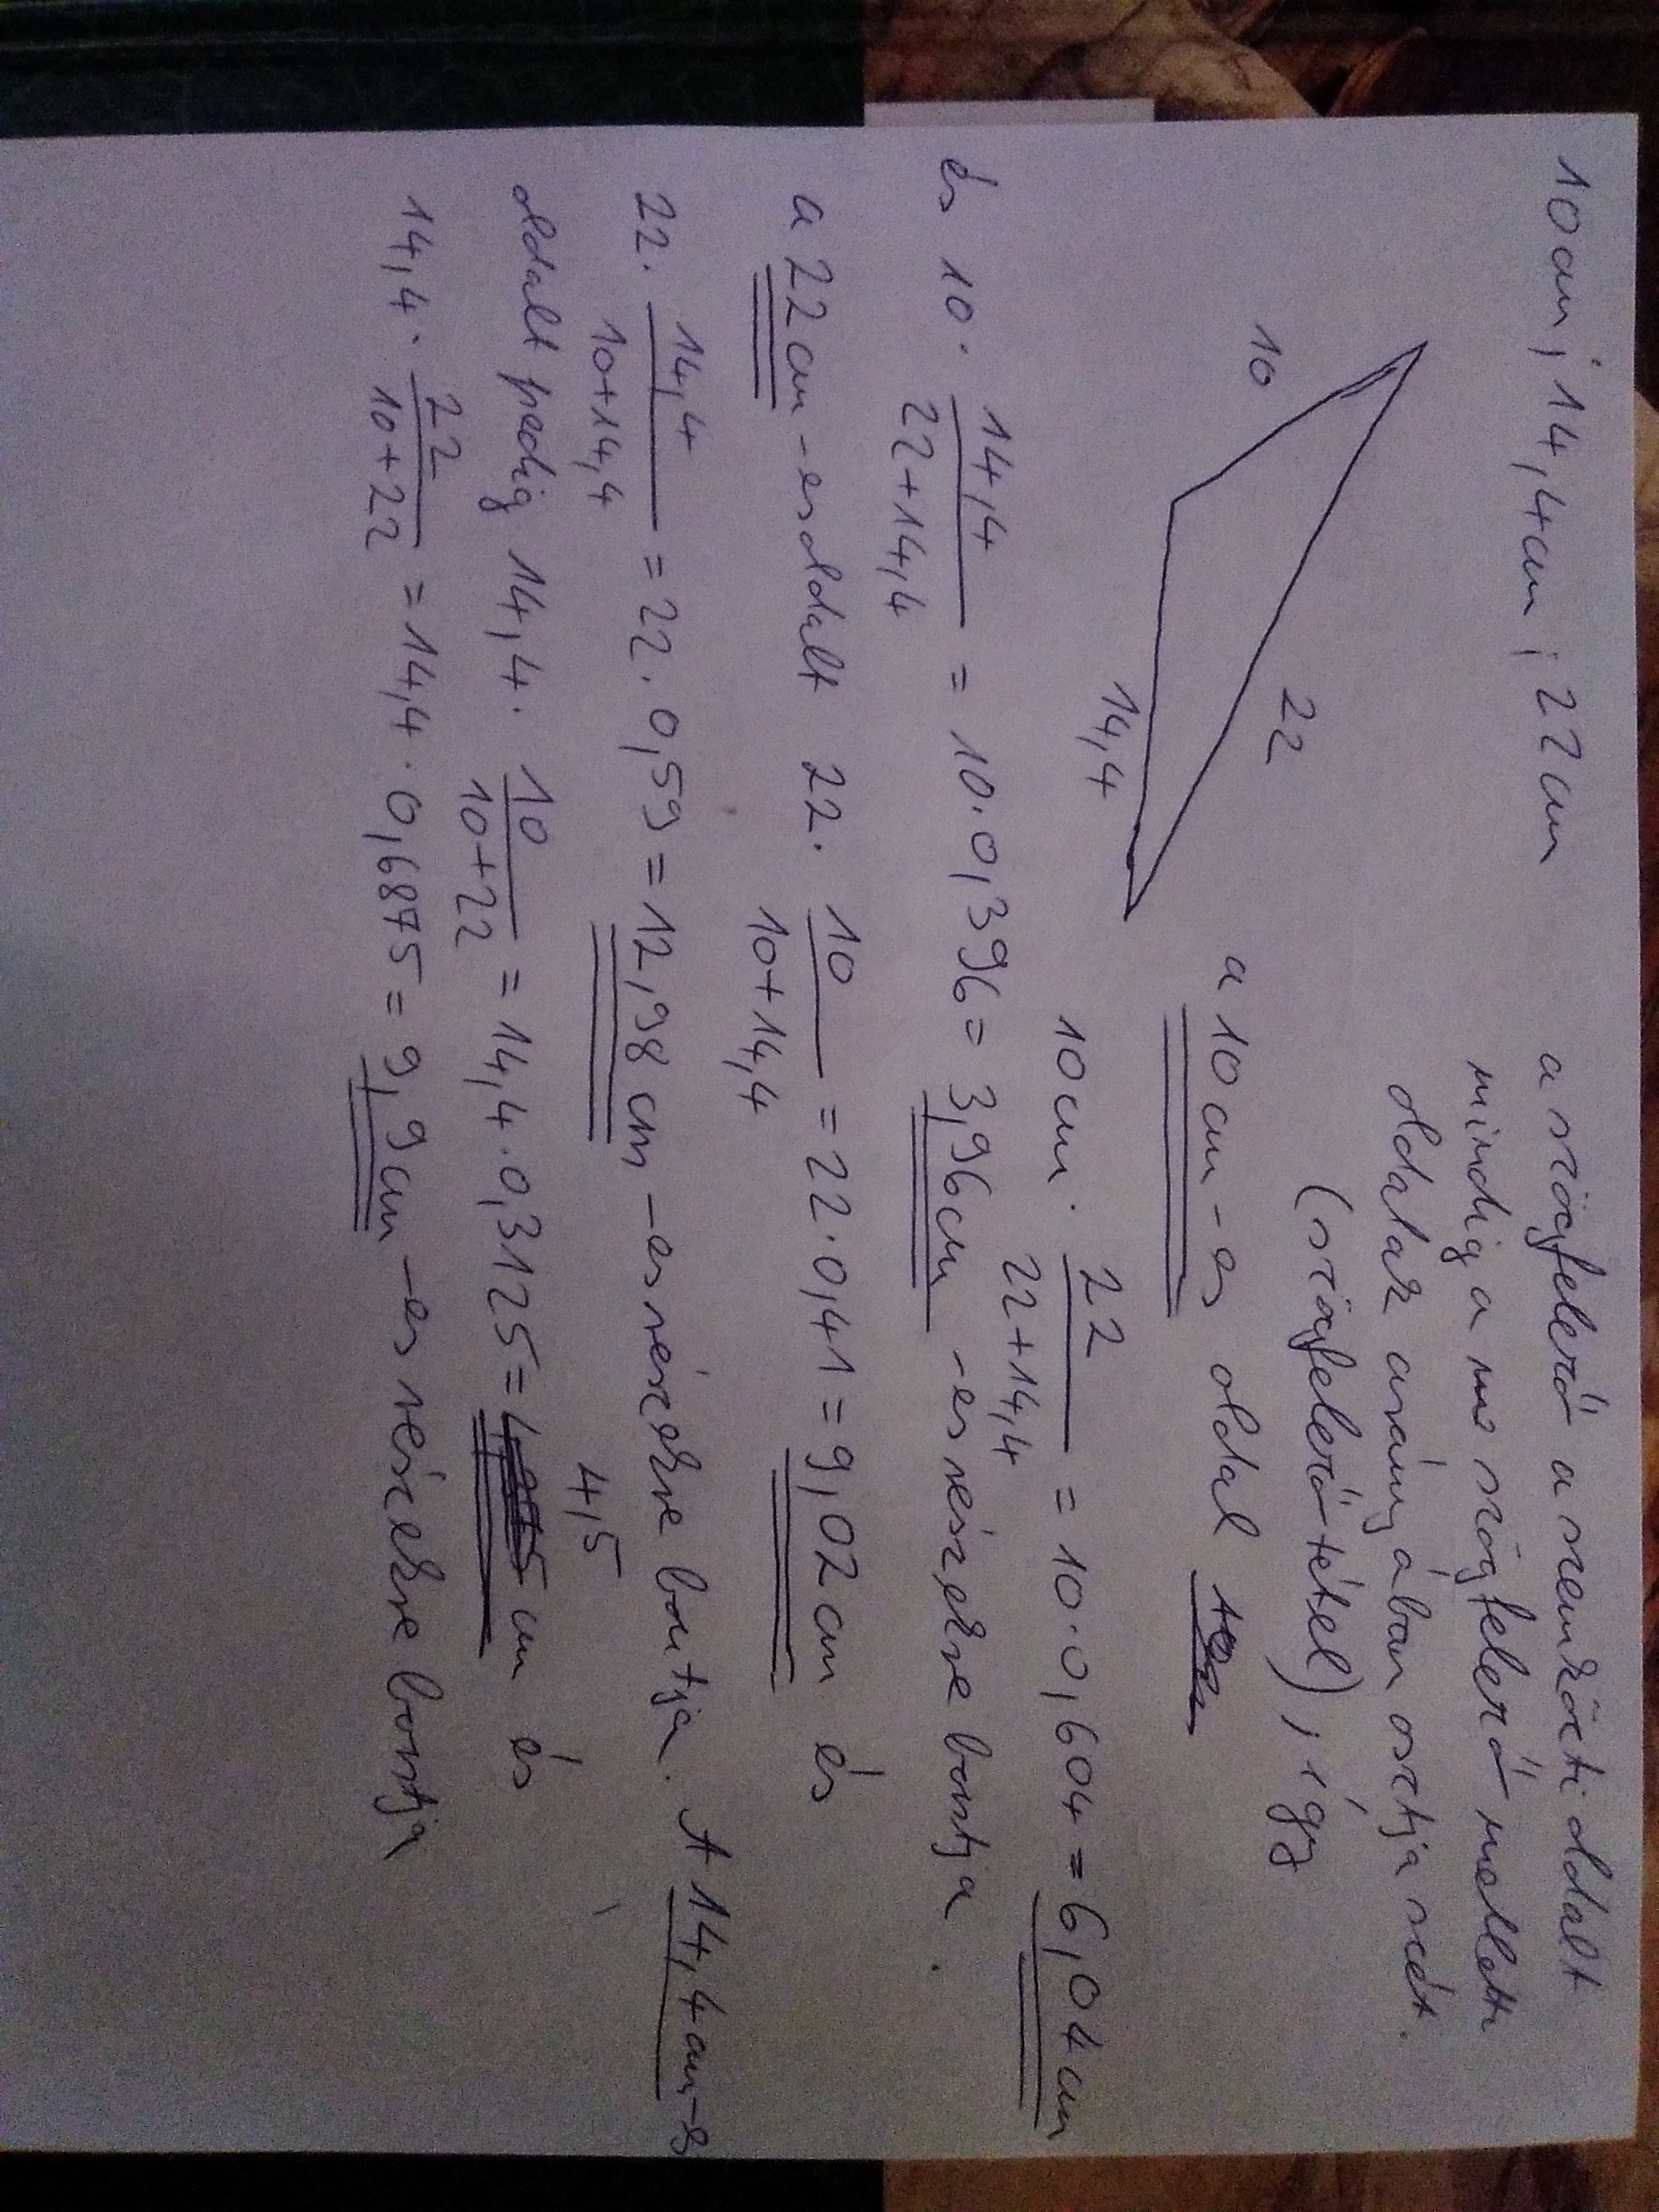 10cm; 14,4cm; 22cm
a szögfelező a szemközti oldalt
mindig a szögfelező melletti
oldalak arányában osztja szét.
(szögfelező tétel), így
10
22
14,4
a 10cm-es oldal
10cm · 22/(22+14,4) = 10·0,604 = 6,04cm
és 10 · 14,4/(22+14,4) = 10·0,396 = 3,96cm -es részekre bontja.
a 22cm -es oldalt 22 · 10/(10+14,4) = 22·0,41 = 9,02cm és
22 · 14,4/(10+14,4) = 22·0,59 = 12,98cm -es részekre bontja. A 14,4cm-s
oldalt pedig 14,4 · 10/(10+22) = 14,4·0,3125 = 4,5 cm és
14,4 · 22/(10+22) = 14,4·0,6875 = 9,9cm -es részekre bontja